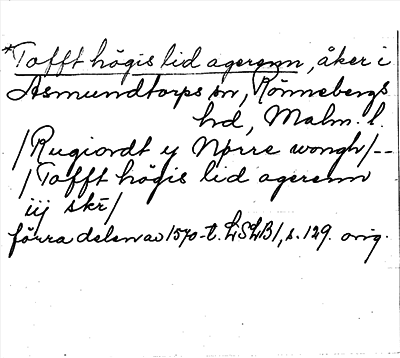 *Tofft högis lid agerenn, åker i
Asmundtorps sn, Rönnebergs
hd, Malm. l.
/Rugiordt y Nørre wongh/--
/Tofft högis lid agerenn
iij skr/
förra delen av 1570-t. LSLB1, s. 129. orig.